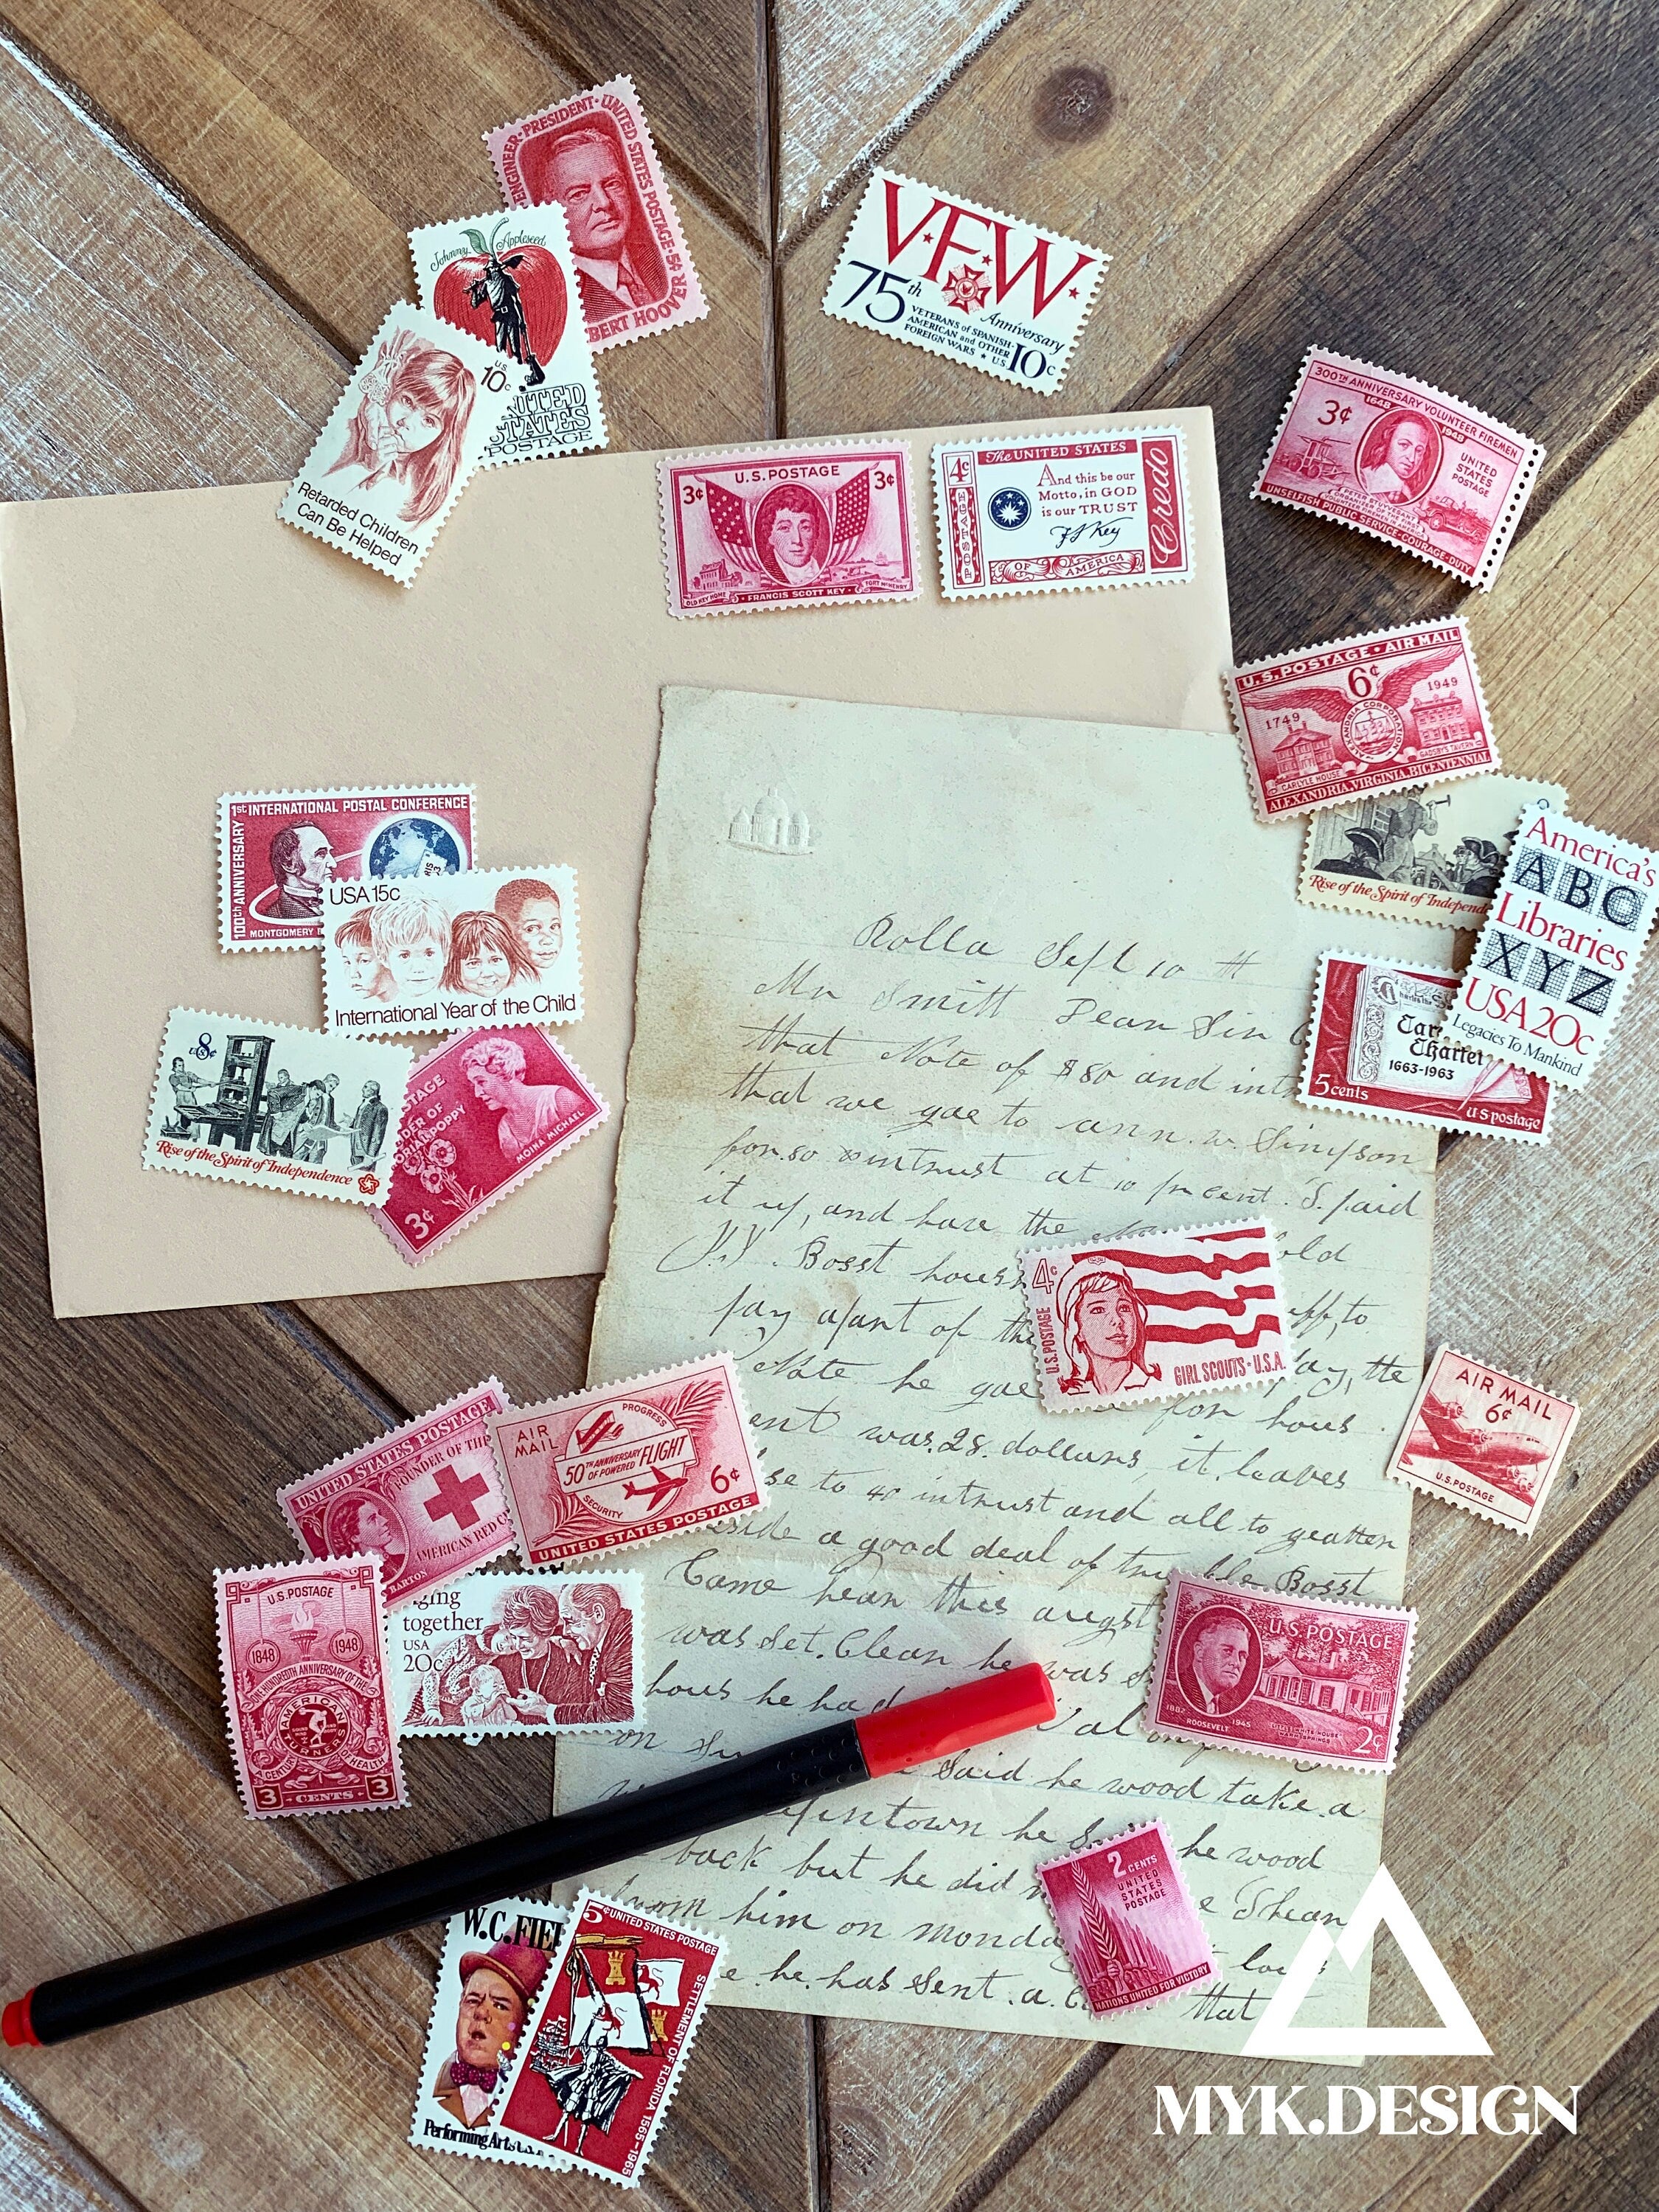 ENGINEER · PRESIDENT · UNITED STATES POSTAGE · 5¢
BERT HOOVER
Johnny Appleseed
U.S.
10c
UNITED
STATES
POSTAGE
Retarded Children
Can Be Helped
VFW
75th Anniversary
VETERANS of SPANISH-
AMERICAN and OTHER
FOREIGN WARS ★ U.S. 10c
U.S. POSTAGE
3¢ 3¢
OLD KEY HOME · FRANCIS SCOTT KEY · FORT McHENRY
The UNITED STATES
4c POSTAGE
And this be our
Motto, in GOD
is our TRUST
F S Key
Credo
OF AMERICA
300TH ANNIVERSARY VOLUNTEER FIREMEN
3¢ 1648 1948
UNITED
STATES
POSTAGE
PETER STUYVESANT
UNSELFISH PUBLIC SERVICE · COURAGE · DUTY
U.S. POSTAGE · AIR MAIL
6¢
1749 1949
ALEXANDRIA CORPORATION
CARLYLE HOUSE GADSBY'S TAVERN
ALEXANDRIA, VIRGINIA, BICENTENNIAL
Rise of the Spirit of Independ
America's
ABC
Libraries
XYZ
USA 20c
Legacies To Mankind
Car
Charter
1663-1963
5 cents US postage
1st INTERNATIONAL POSTAL CONFERENCE
100th ANNIVERSARY
MONTGOMERY
USA 15c
International Year of the Child
8
US¢
Rise of the Spirit of Independence
STAGE
DER OF
ORIAL POPPY
MOINA MICHAEL
3¢
Rolla Sept 10 th
Mr Smitt Dear Sir
that Note of $80 and int
that we gae to ann. w. Simpson
for .80 intrust at 10 pr cent. I paid
it up, and have the old
Bosst hous
pay apart of the to
Note he gae pay, the
for hous
ent was. 28. dollars, it. leaves
se to 40 intrust and all to geather
side a good deal of trubble Bosst
Came hear this augst
was Set. Clean he was
hous he had
on
Said he wood take. a
he he wood
back but he did
from him on monda hear
e. he. has Sent. a. that
4c
U.S. POSTAGE
GIRL SCOUTS · U.S.A.
AIR MAIL
6¢
U.S. POSTAGE
UNITED STATES POSTAGE
FOUNDER OF THE
AMERICAN RED C
BARTON
AIR
MAIL
PROGRESS
50TH ANNIVERSARY
OF POWERED FLIGHT
SECURITY
6¢
UNITED STATES POSTAGE
U.S. POSTAGE
1848 1948
ONE HUNDREDTH ANNIVERSARY OF THE
AMERICAN
TURNERS
A CENTURY OF HEALTH
3 CENTS 3
ging
together
USA
20c
U.S. POSTAGE
1882 ROOSEVELT 1945
LITTLE WHITE HOUSE
WARM SPRINGS
2¢
2 CENTS
UNITED
STATES
POSTAGE
NATIONS UNITED FOR VICTORY
W.C. FIEL
Performing Arts
5¢ UNITED STATES POSTAGE
SETTLEMENT OF FLORIDA 1565-1965
MYK.DESIGN